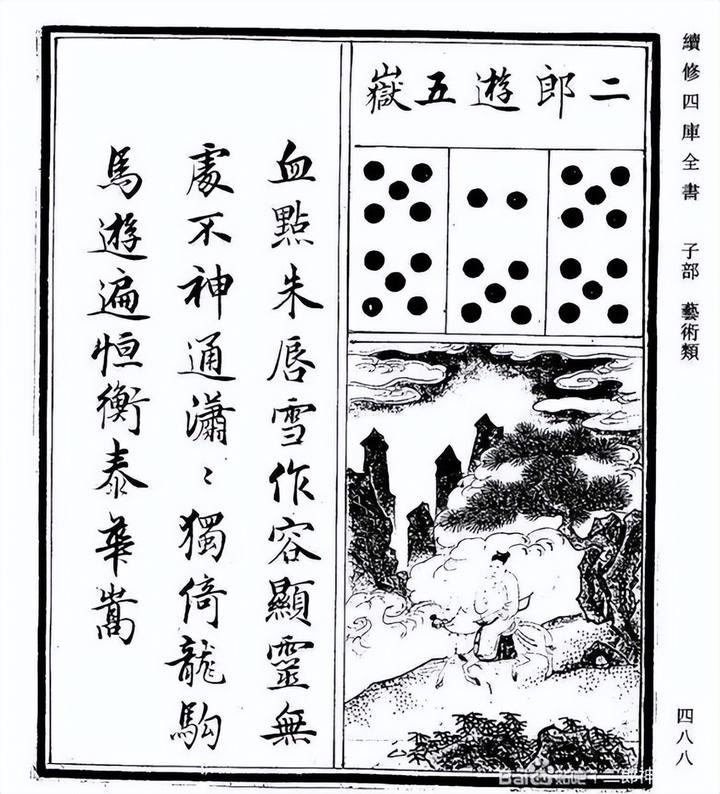 續修四庫全書 子部 藝術類
四八八
二郎遊五嶽
血點朱唇雪作容顯靈無
處不神通瀟〻獨倚龍駒
馬遊遍恒衡泰華嵩
Bai 贴吧